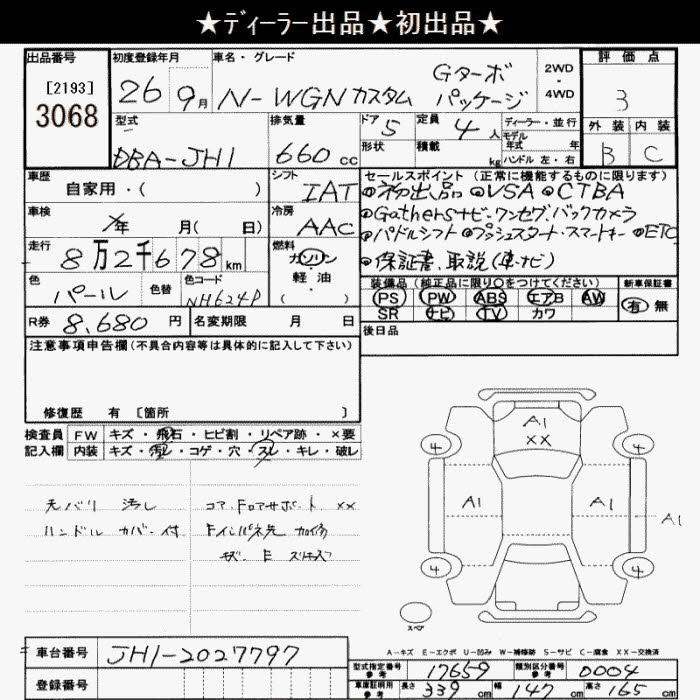 ★ディーラー出品★初出品★
出品番号 初度登録年月 車名・グレード 評価点
[2193]
3068
26 9月 N-WGN カスタム Gターボ パッケージ 2WD・4WD 3
型式 排気量 ドア 定員 ディーラー・並行 外装 内装
DBA-JH1 660cc 5 4人 モデル年式 年 B C
形状 積載 kg ハンドル 左・右
車歴 シフト セールスポイント(正常に機能するものに限ります)
自家用・( ) IAT ◎初出品 ◎VSA ◎CTBA
車検 冷房 ◎Gathersナビ・ワンセグ バックカメラ
年 月( 日) AAC ◎パドルシフト ◎プッシュスタート・スマートキー ◎ETC
走行 燃料 ◎保証書、取説(車・ナビ)
8万2千678km ガソリン
軽・油
( )
色 色替 色コード 装備品(純正品に限り○をつけてください) 新車保証書
パール NH624P PS PW ABS エアB AW 有 無
SR ナビ TV カワ
R券 8,680円 名変期限 月 日 後日品
注意事項申告欄(不具合内容等は具体的に記入して下さい)
修復歴 有 [箇所 ]
検査員 FW キズ・飛石・ヒビ割・リペア跡・×要
記入欄 内装 キズ・汚レ・コゲ・穴・スレ・キレ・破レ
汚し コア、Fロアサポート ××
ハンドル カバー付 Fインパネ先
キズ、F
A1
××
4 4
A1 A1 A1
4 4
スペア
A-キズ E-エクボ U-凹み W-補修跡 S-サビ C-腐食 XX-交換済
車台番号 JH1-2027797
型式指定番号 参考 17659 類別区分番号 参考 0004
登録番号
車庫証明用 参考 長さ 339cm 幅 147cm 高さ 165cm